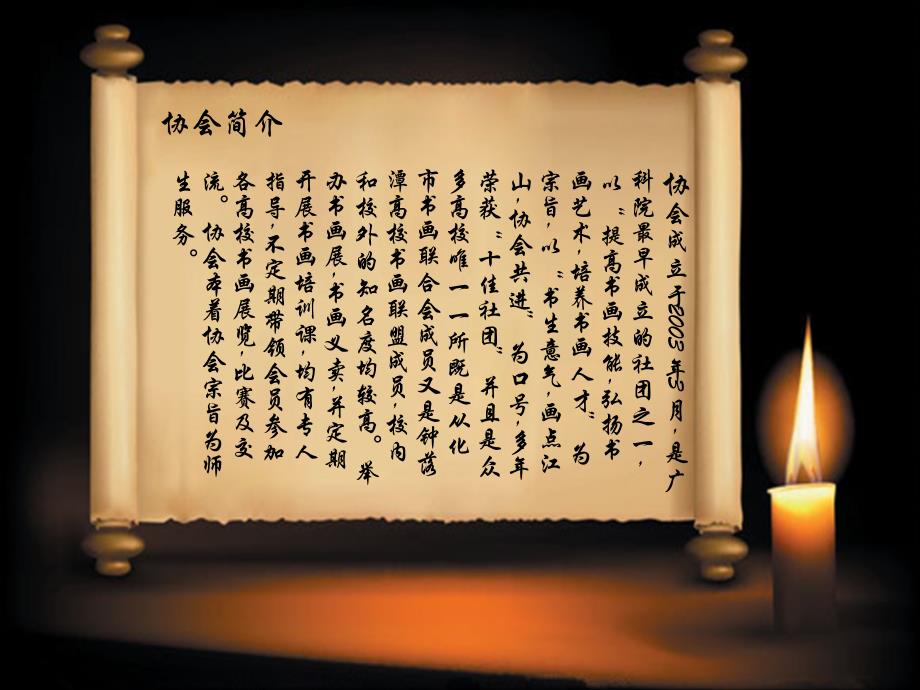 协会简介
协会成立于2003年3月,是广
科院最早成立的社团之一,
以“提高书画技能,弘扬书
画艺术,培养书画人才”为
宗旨,以“书生意气,画点江
山,协会共进”为口号,多年
荣获“十佳社团”并且是众
多高校唯一一所既是从化
市书画联合会成员又是钟落
潭高校书画联盟成员,校内
和校外的知名度均较高。举
办书画展,书画义卖,并定期
开展书画培训课,均有专人
指导,不定期带领会员参加
各高校书画展览,比赛及交
流。协会本着协会宗旨为师
生服务。